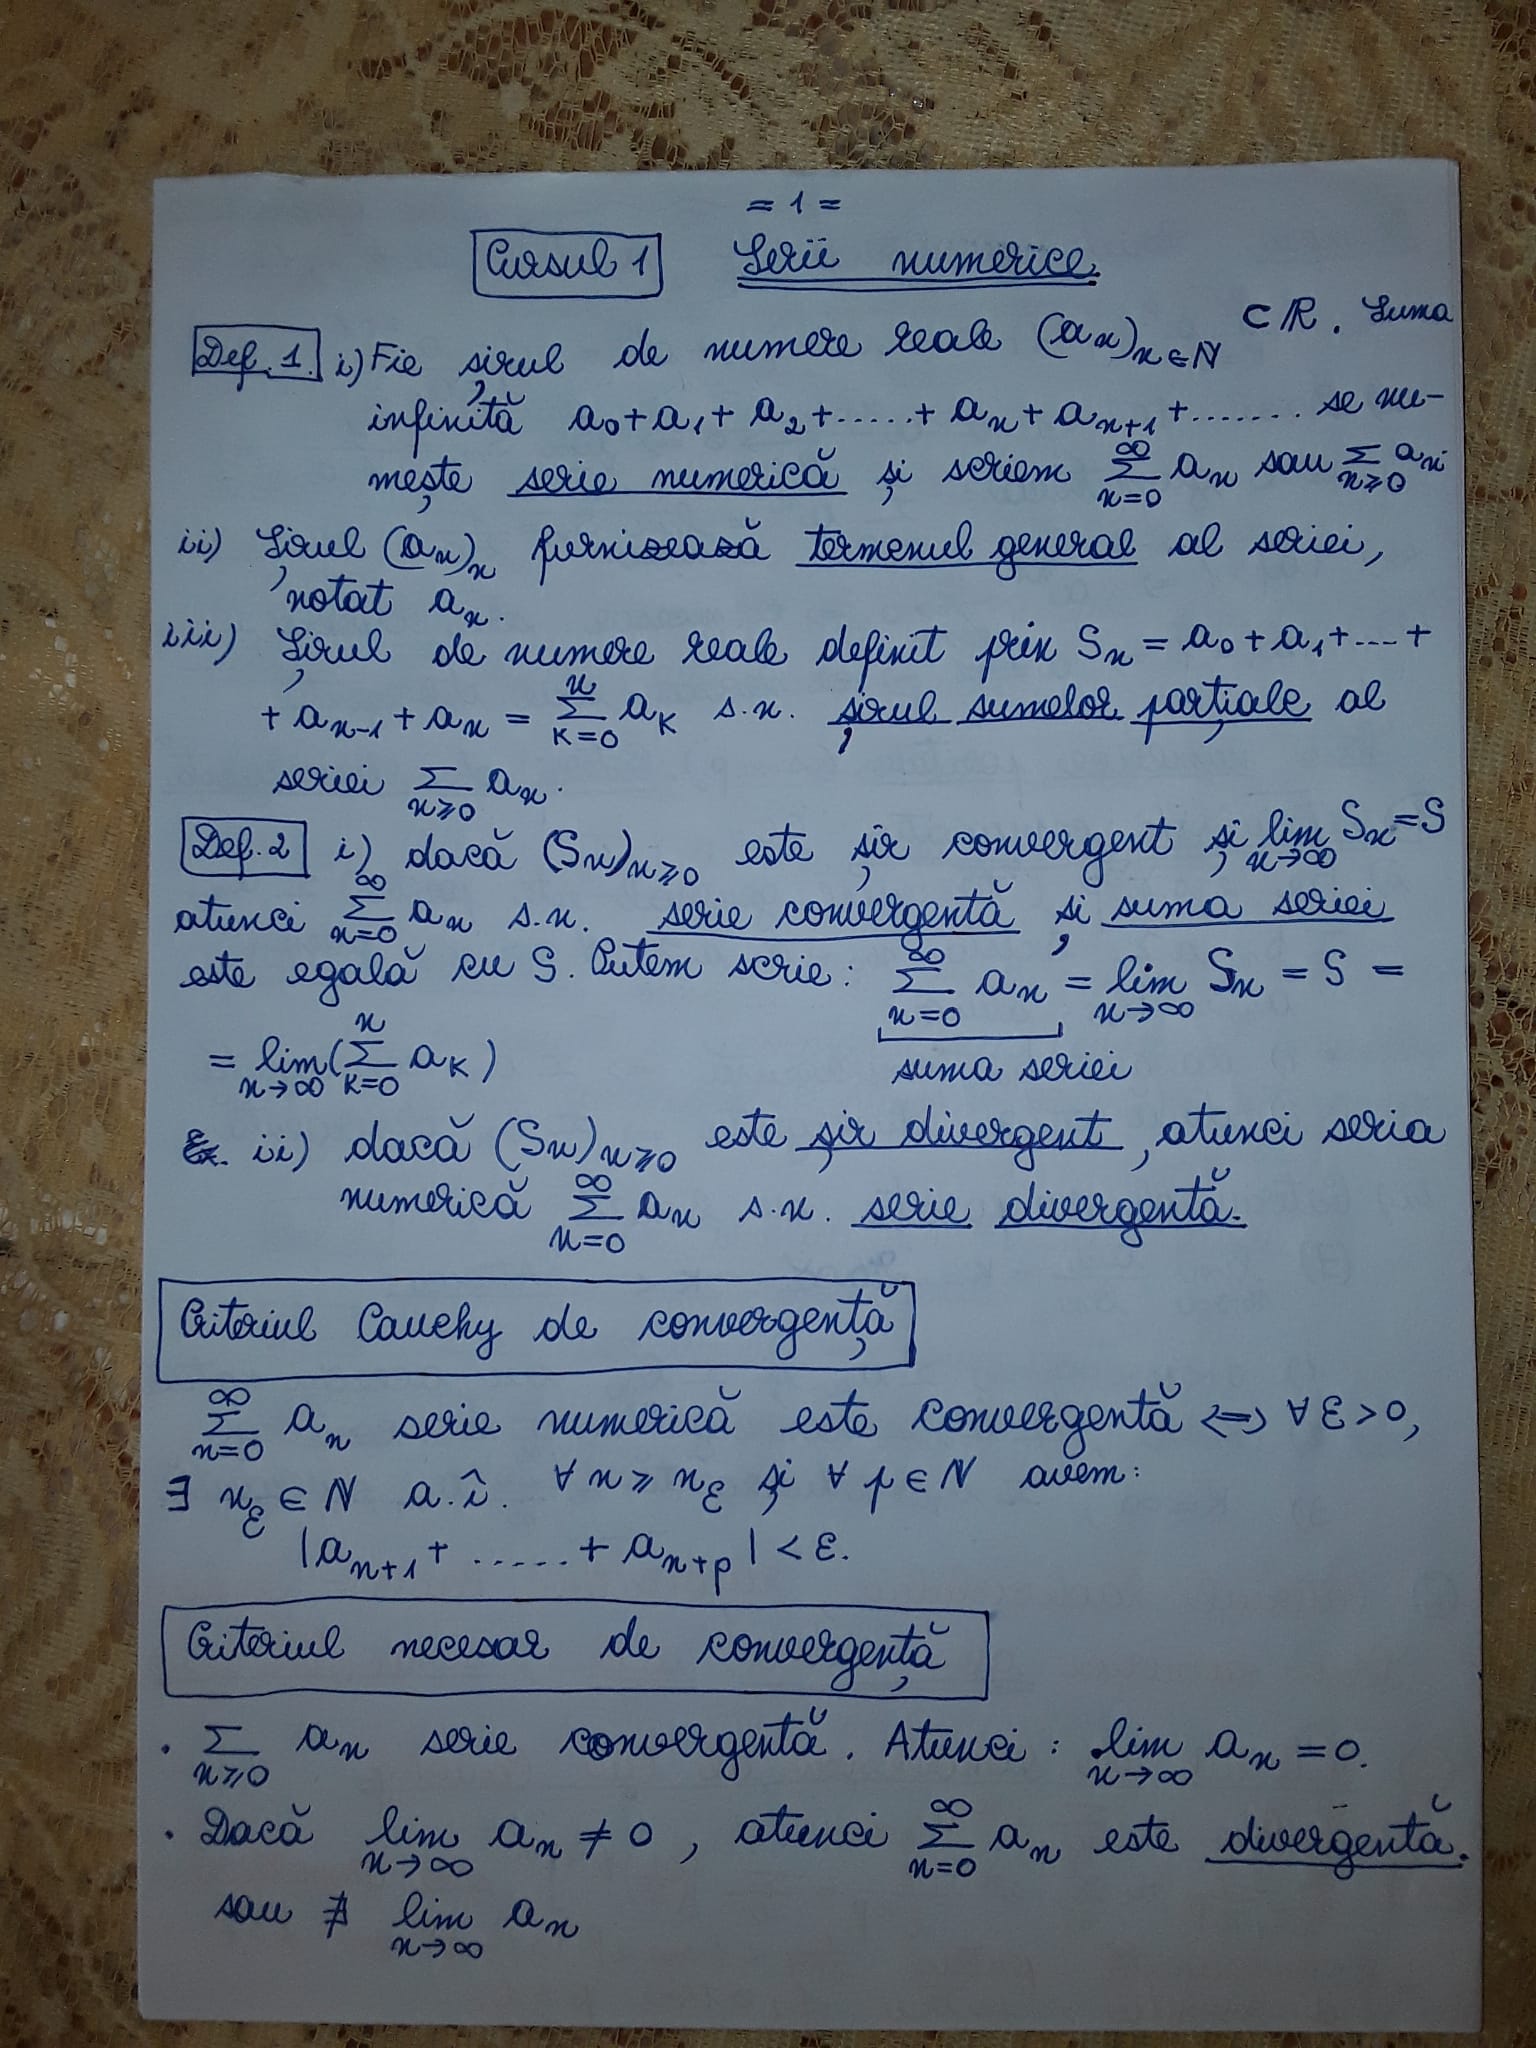 = 1 =
Cursul 1 Serii numerice
Def. 1. i) Fie șirul de numere reale (aₙ)ₙ∈ℕ ⊂ ℝ. Suma
infinită a₀ + a₁ + a₂ + ..... + aₙ + aₙ₊₁ + ....... se nu-
mește serie numerică și scriem ∑_{n=0}^{∞} aₙ sau ∑_{n≥0} aₙ
ii) Șirul (aₙ)ₙ furnizează termenul general al seriei,
notat aₙ.
iii) Șirul de numere reale definit prin Sₙ = a₀ + a₁ + .... +
+ aₙ₋₁ + aₙ = ∑_{k=0}^{n} aₖ s.n. șirul sumelor parțiale al
seriei ∑_{n≥0} aₙ.
Def. 2 i) dacă (Sₙ)ₙ≥₀ este șir convergent și lim_{n→∞} Sₙ = S
atunci ∑_{n=0}^{∞} aₙ s.n. serie convergentă și suma seriei
este egală cu S. Putem scrie: ∑_{n=0}^{∞} aₙ = lim_{n→∞} Sₙ = S =
= lim_{n→∞} (∑_{k=0}^{n} aₖ) suma seriei
ii) dacă (Sₙ)ₙ≥₀ este șir divergent, atunci seria
numerică ∑_{n=0}^{∞} aₙ s.n. serie divergentă.
Criteriul Cauchy de convergență
∑_{n=0}^{∞} aₙ serie numerică este convergentă ⟺ ∀ ε > 0,
∃ n_ε ∈ ℕ a.î. ∀ n ≥ n_ε și ∀ p ∈ ℕ avem:
|aₙ₊₁ + ...... + aₙ₊ₚ| < ε.
Criteriul necesar de convergență
. ∑_{n≥0} aₙ serie convergentă. Atunci : lim_{n→∞} aₙ = 0.
. Dacă lim_{n→∞} aₙ ≠ 0, atunci ∑_{n=0}^{∞} aₙ este divergentă.
sau ∄ lim_{n→∞} aₙ